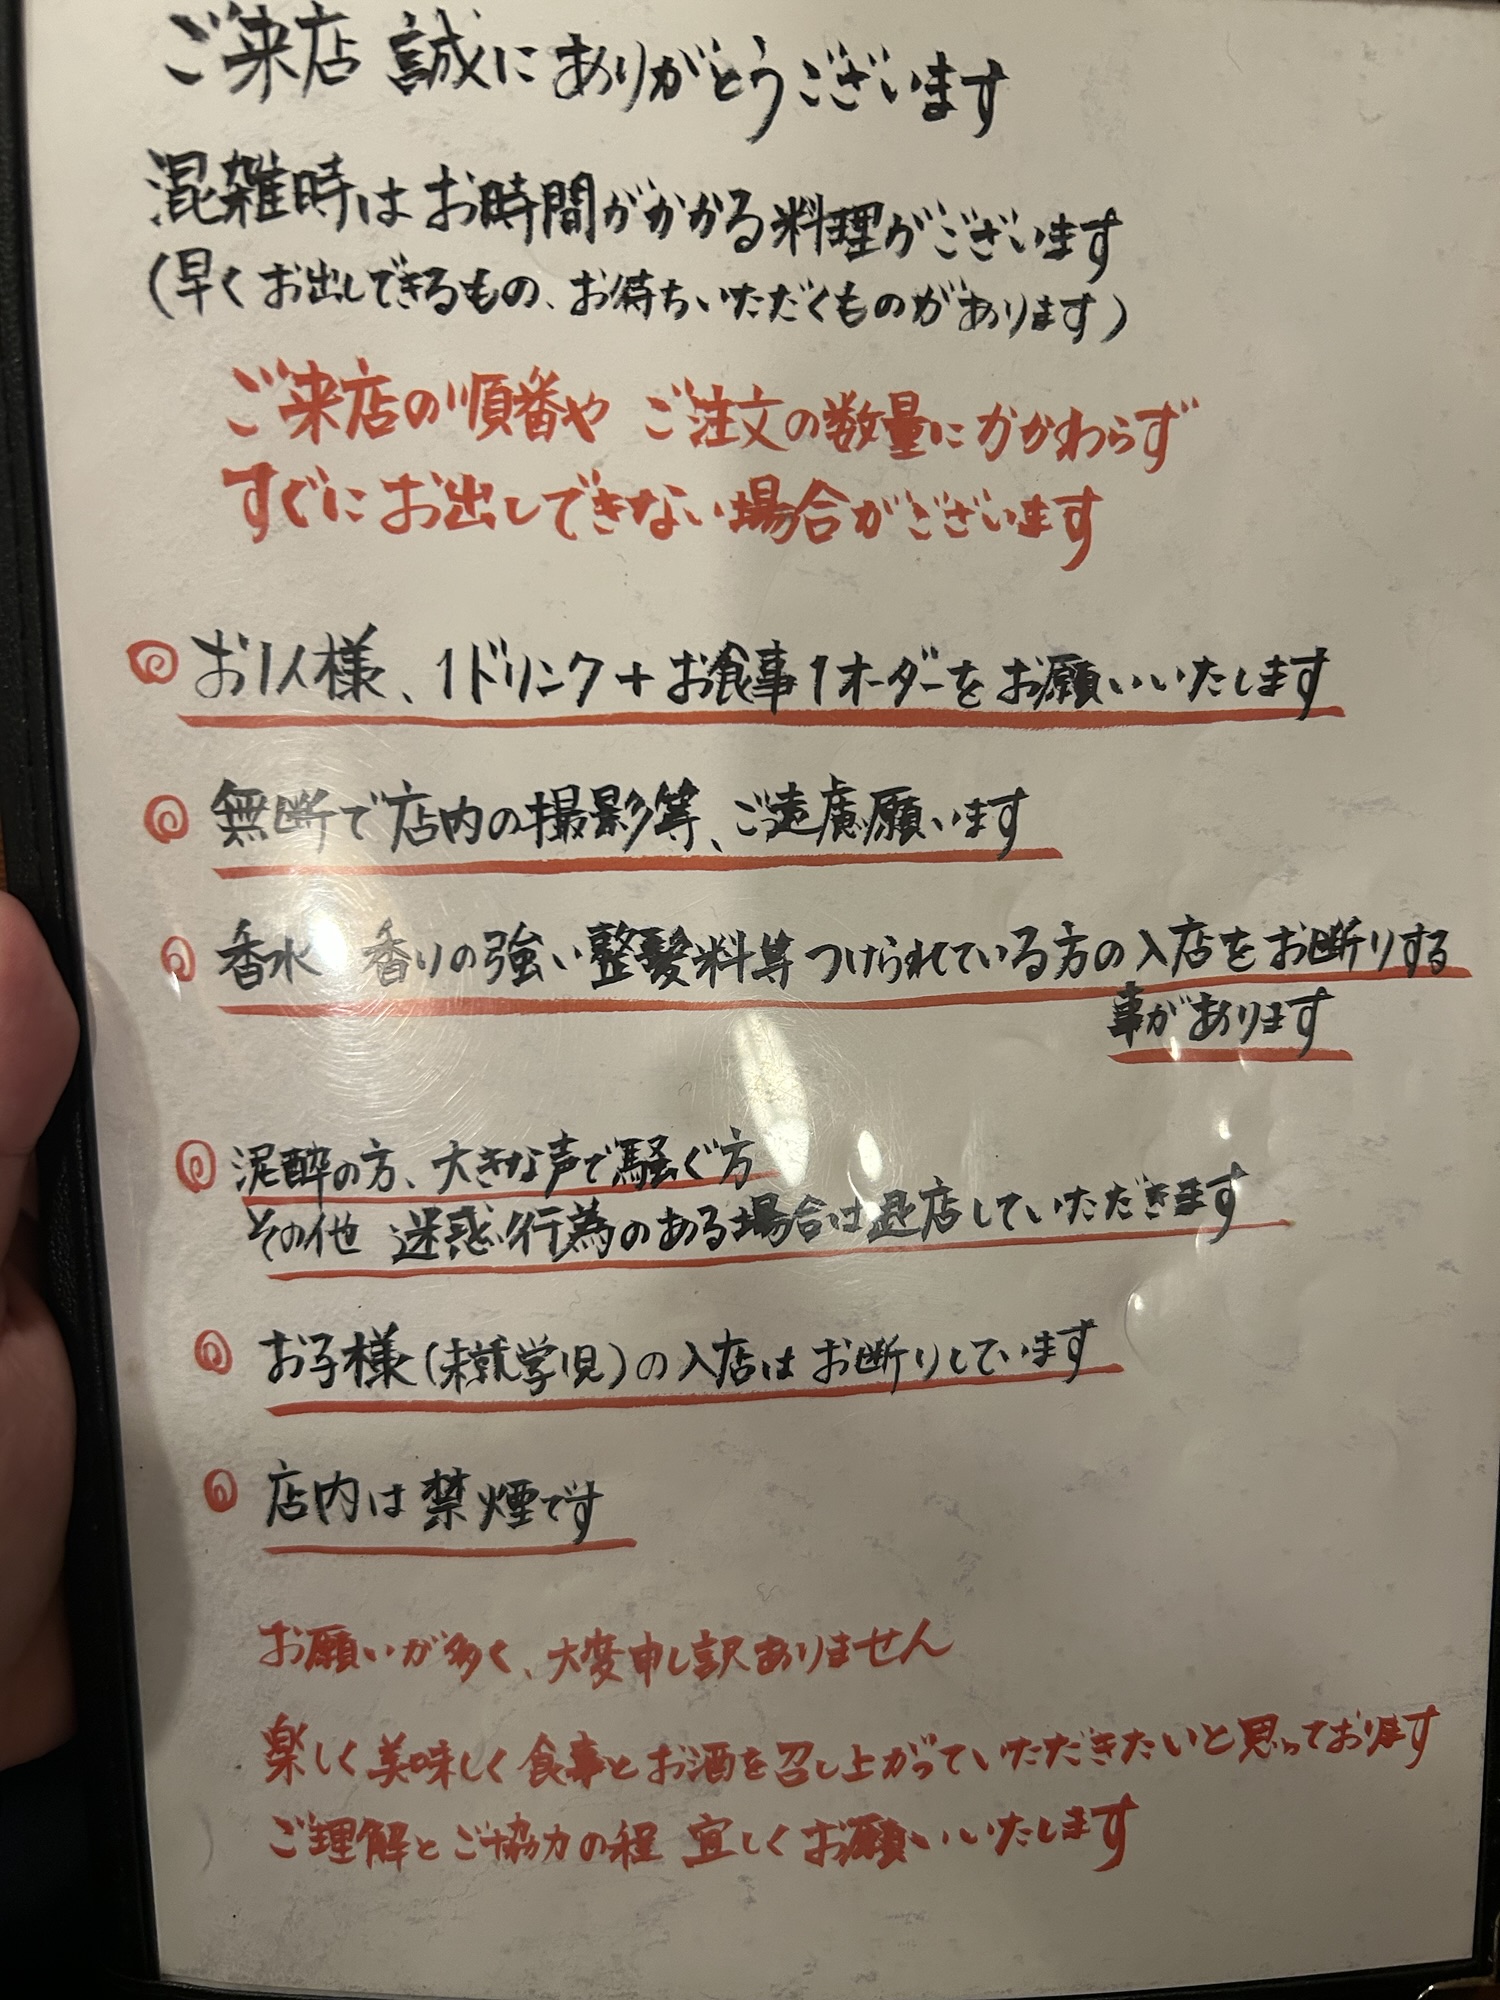 ご来店 誠にありがとうございます
混雑時はお時間がかかる料理がございます
(早くお出しできるもの、お待ちいただくものがあります)
ご来店の順番や ご注文の数量にかかわらず
すぐにお出しできない場合がございます
お1人様、1ドリンク+お食事1オーダーをお願いいたします
無断で店内の撮影等、ご遠慮願います
香水 香りの強い整髪料等つけられている方の入店をお断りする
事があります
泥酔の方、大きな声で騒ぐ方
その他 迷惑行為のある場合は退店していただきます
お子様(未就学児)の入店はお断りしています
店内は禁煙です
お願いが多く、大変申し訳ありません
楽しく美味しく食事とお酒を召し上がっていただきたいと思っております
ご理解とご協力の程 宜しくお願いいたします